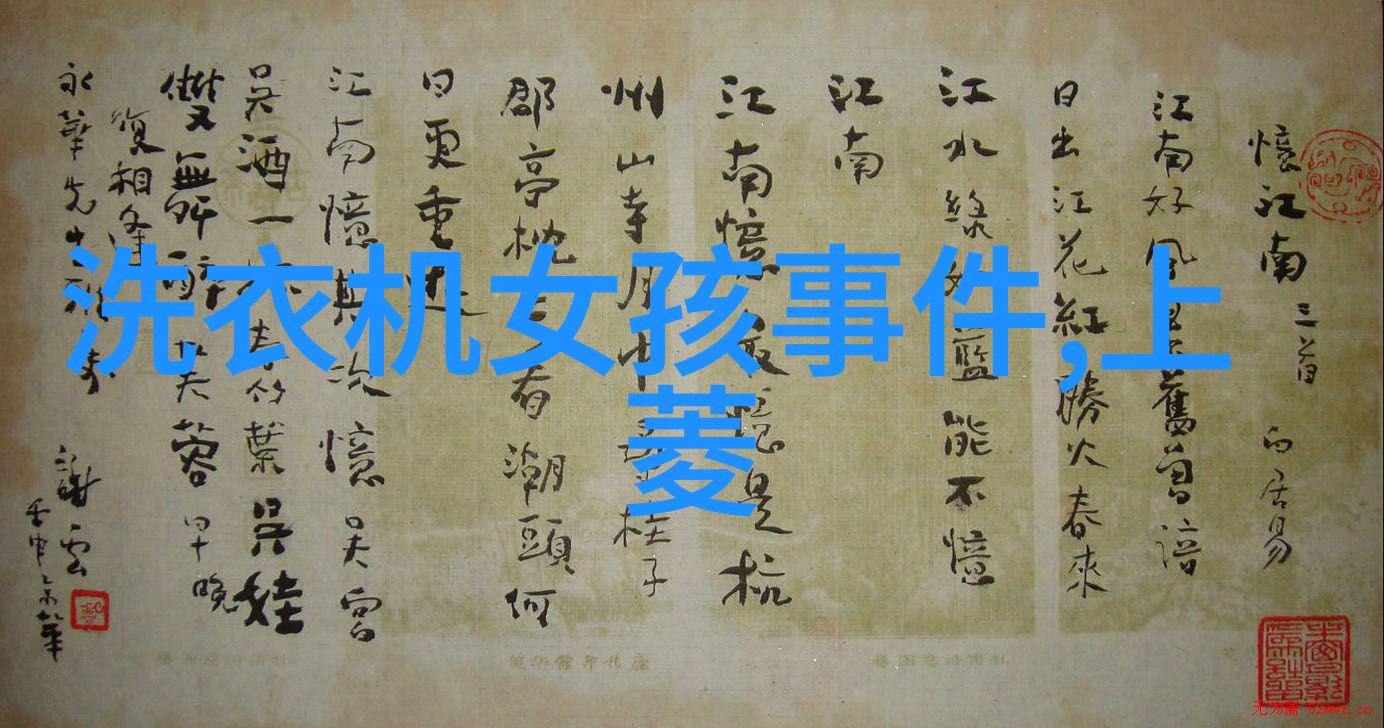 洗衣机女孩事件,上
菱
憶江南 三首 白居易
江南好風景舊曾諳
日出江花紅勝火春來
江水綠如藍能不憶
江南
江南憶最憶是杭
州山寺月中尋桂子
郡亭枕上看潮頭何
日更重遊
江南憶其次憶吳宮
吳酒一杯春竹葉吳娃
雙舞醉芙蓉早晚
復相逢
永華先生
謝雲
壬申京華
无为斋 52wwz.cn